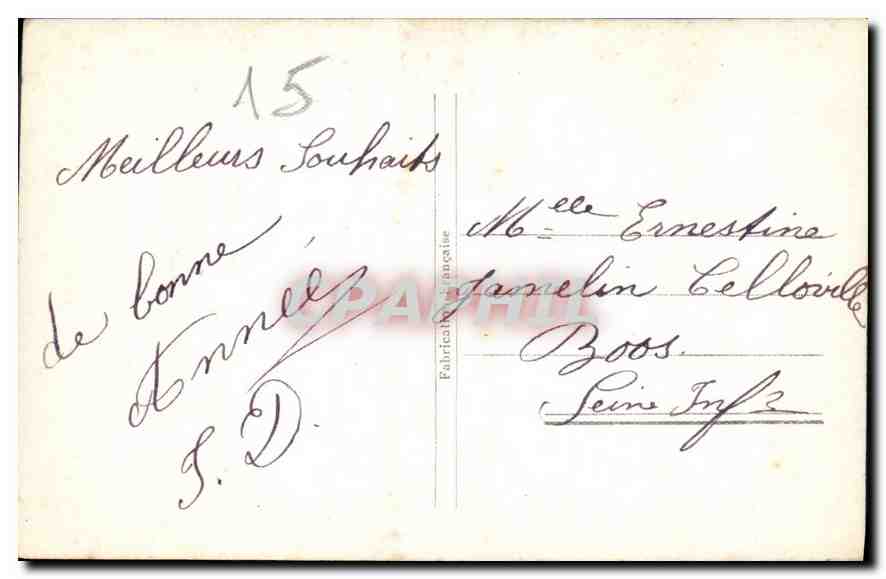 15
Meilleurs Souhaits
de bonne
Année
J. D.
Fabrication Française
CPAPHIL
Melle Ernestine
Jamelin Celloville
Boos.
Seine Infre